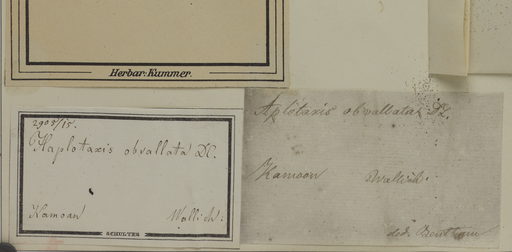 Herbar: Kummer.
2905/15.
Haplotaxis obvallata DC.
Kamoon
Wallich:
SCHULTES
Aplotaxis obvallata DC.
Kamoon
Wallich:
dedit Bentham